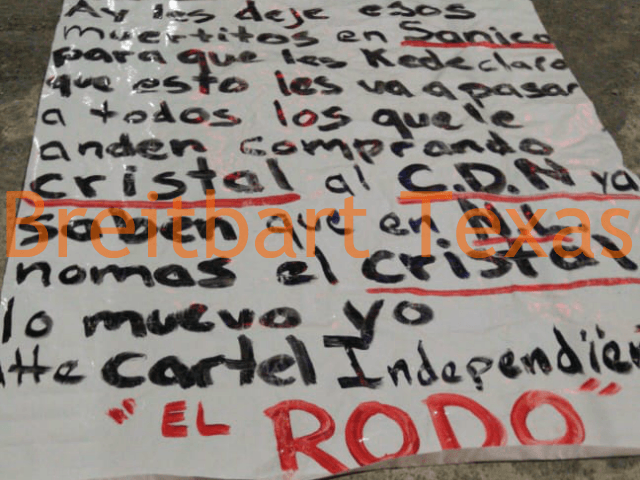 Ay les deje esos
muertitos en Sanico
para que les Kede claro
que esto les va a pasar
a todos los que le
anden comprando
cristal al C.D.N ya
saben que en N.L.
nomas el cristal
lo muevo yo
Atte cartel Independien
"EL RODO"
Breitbart Texas